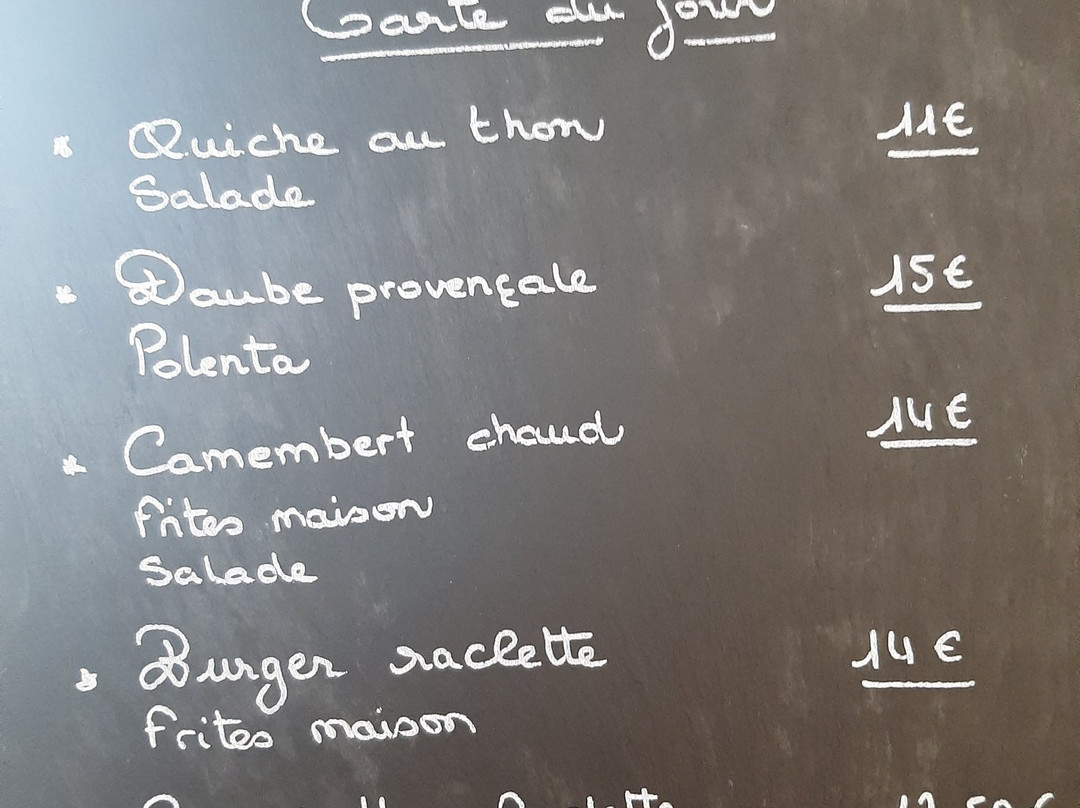 Carte du jour
* Quiche au thon 11€
Salade
* Daube provençale 15€
Polenta
* Camembert chaud 14€
frites maison
Salade
* Burger raclette 14€
frites maison